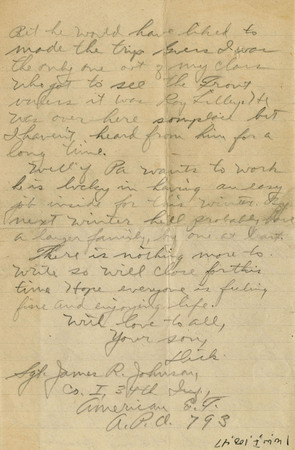 But he would have liked to
made the trip. Guess I was
the only one out of my class
who got to see the Front
unless it was Roy Lilley. He
was over here someplace but
I havent heard from him for a
long time.
Well if Pa wants to work
he is lucky in having an easy
job inside for this winter. By
next winter he'll probably have
a larger family, by one at least.
There is nothing more to
write so will close for this
time. Hope everyone is feeling
fine and enjoying life.
With love to all,
Your son,
Dick.
Sgt. James R. Johnson,
Co. I, 34th Inf.,
American E.F.
A.P.O. 793